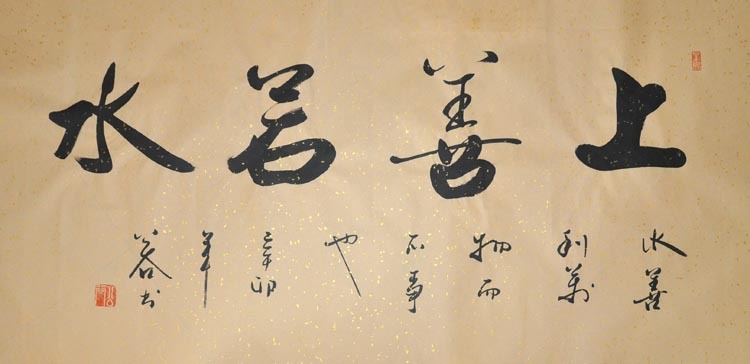 上善若水
水善
利萬
物而
不争
也
辛卯
年
书